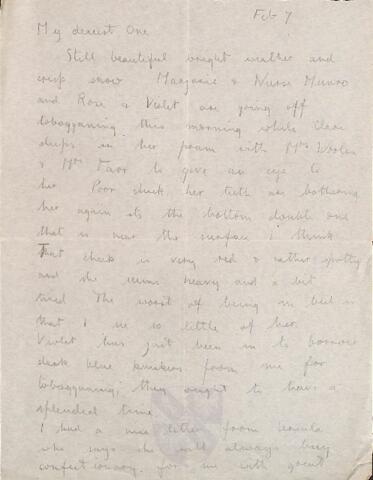 Feb 7
My dearest One
Still beautiful bright weather and
crisp snow Marjorie & Nurse Munro
and Rose & Violet are going off
tobogganing this morning while Clare
sleeps in her pram with Mrs
& Mrs Tarr to give an eye to
her Poor duck her teeth are bothering
her again its the bottom double one
that is near the surface I think
That cheek is very red & rather spotty
and she seems heavy and a bit
tired The worst of being in bed is
that I see so little of her
Violet has just been in to borrow
dark blue knickers from me for
tobogganing; they ought to have a
splendid time
I had a nice letter from
who says she will always buy
confectionary for me with great